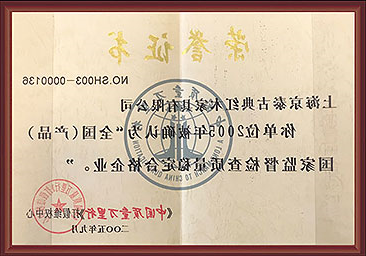 荣誉证书
NO.SH003-0000136
上海京泰古典红木家具有限公司
你单位2005年被确认为“全国(产品)
国家监督检查质量稳定合格企业。”
《中国质量万里行》打假维权中心
二〇〇五年九月